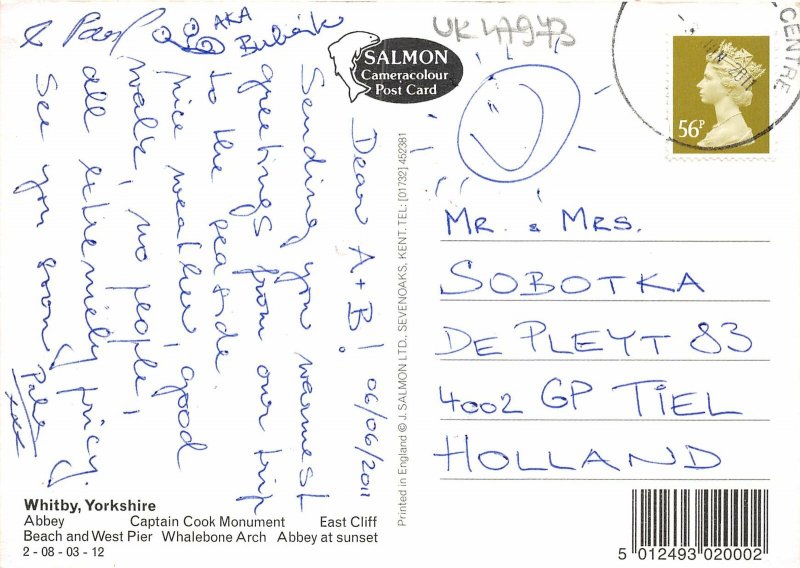 Dear A+B! 06/06/2011
Sending you warmest
greetings from our trip
to the seaside.
Nice weather, good
walk, no people,
all extremely pricy.
See you soon,
Pala
xxx
& Paul
AKA
Bubák
UK 47973
SALMON
Cameracolour
Post Card
56P
2011
CENTRE
Mr. & Mrs.
SOBOTKA
DE PLEYT 83
4002 GP TIEL
HOLLAND
Printed in England © J. SALMON LTD., SEVENOAKS, KENT. TEL: [01732] 452381
Whitby, Yorkshire
Abbey Captain Cook Monument East Cliff
Beach and West Pier Whalebone Arch Abbey at sunset
2 - 08 - 03 - 12
5 012493 020002